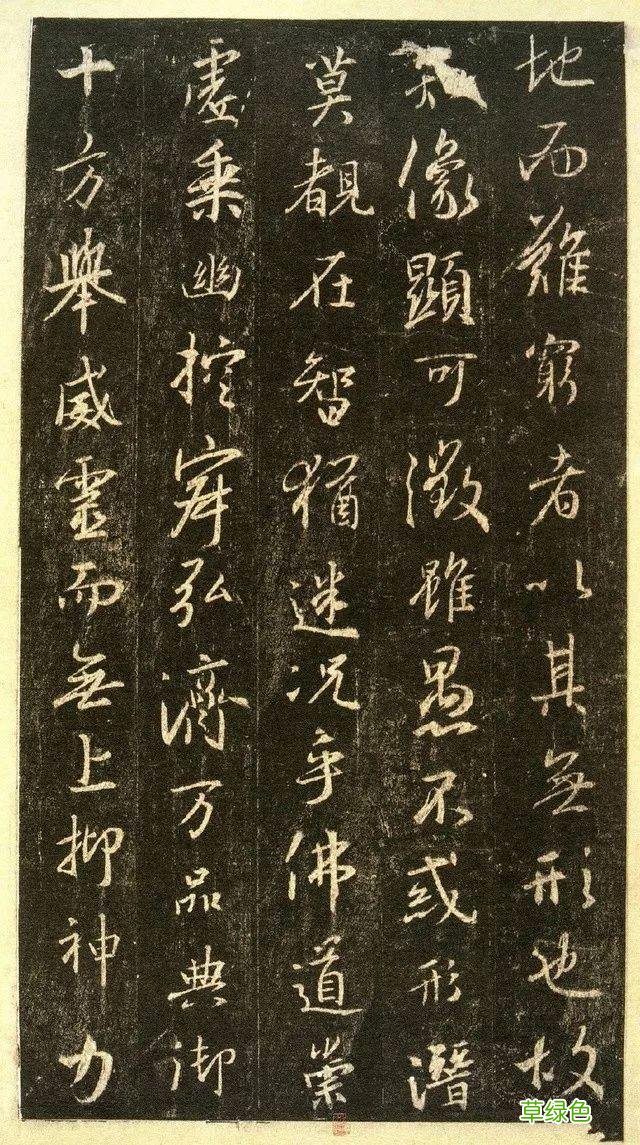 地而難窮者以其無形也故
像顯可徵雖愚不惑形潛
莫覩在智猶迷况乎佛道崇
虛乘幽控寂弘濟万品典御
十方舉威靈而無上抑神力
草绿色